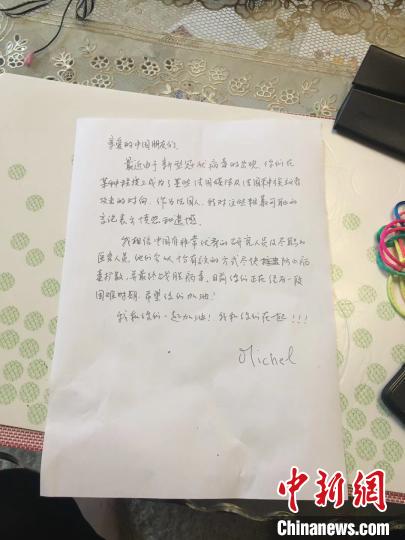 亲爱的中国朋友们,
最近由于新型冠状病毒的出现,你们在
某种程度上成为了某些法国媒体及法国种族主义者
攻击的对向。作为法国人,我对这些粗鄙可耻的
言论表示愤怒和遗憾。
我相信中国有非常优秀的研究人员及尽职的
医务人员,他们会以你有效的方式尽快控制病
毒扩散,并最终战胜病毒,目前你们正在经历一段
困难时期,希望你们加油!
我和你们一起加油!我和你们在一起!!!
Michel
中新网
Chinanews.com